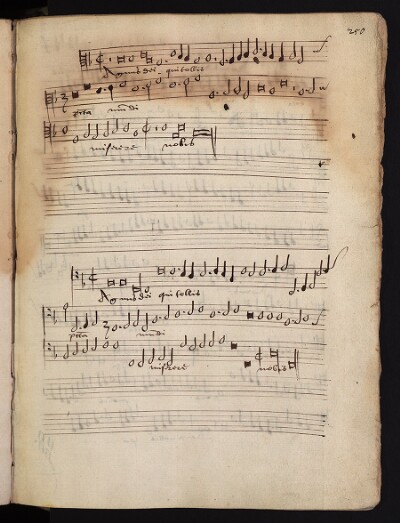 250
Agnus dei qui tollis
pctā mūdi
miserere nobis
Agnus dei qui tollis
pctā mūdi
miserere nobis